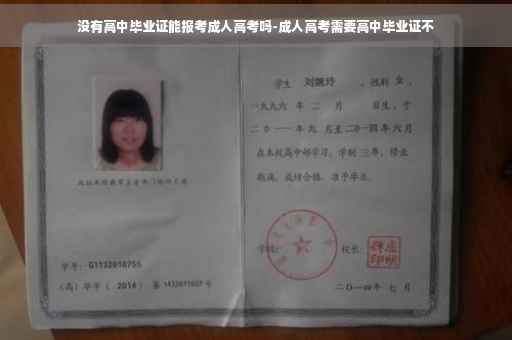 没有高中毕业证能报考成人高考吗-成人高考需要高中毕业证不
学生 刘婉玲 ，性别 女 ，
一九九六 年 二 月 日生，于
二〇一一年九 月至二〇一四年 六 月
在本校高中部学习，学制 三年，修业
期满，成绩合格，准予毕业。
学校： 校长：
学号：G1132010755
（高）毕字（ 2014 ）第 1432011027 号
二〇一四年 七 月